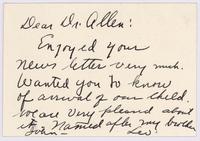 Dear Dr. Allen:
Enjoyed your
news letter very much.
Wanted you to know
of arrival of our child.
We are very pleased about
it. Named after my brother